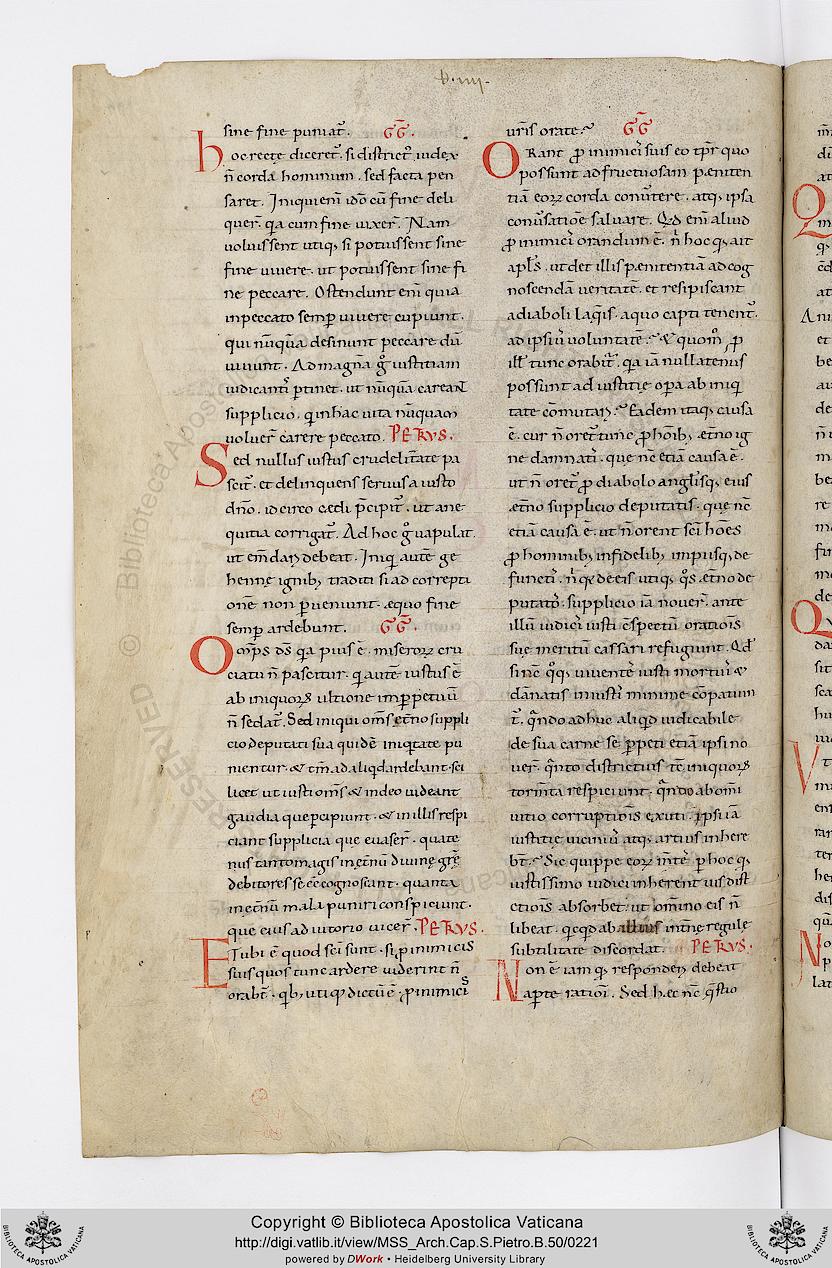 b · IIII ·
sine fine puniat̄. GG̅.
hoc recte diceret̄. si districtꝰ iudex
n̄ corda hominum. sed facta pen
saret. Iniqui eni᷒ idō cū fine deli
quer̄. q̄a cum fine uixer̄. Nam
uoluissent utiq; si potuissent sine
fine uiuere. ut potuissent sine fi
ne peccare. Ostendunt eni᷒ quia
inpeccato semp̱ uiuere cupiunt.
qui nūquā desinunt peccare dū
uiuunt. Ad magnā g̊ iustitiam
iudicantis p̱tinet. ut nūquā careant
supplicio. qui in hac uita nūquam
uoluer̄ carere peccato. PETRVS.
Sed nullus iustus crudelitate pa
scit̄. et delinquens seruus a iusto
dn̄o. idcirco cędi p̄cipit̄. ut a ne
quitia corrigat̄. Ad hoc g̊ uapulat.
ut em̄dari debeat. Iniqui autē ge
hennę ignib; traditi si ad correpti
onē non p̱ueniunt. ęquo fine
semp̱ ardebunt. GG̅.
Om̄ps ds̄ q̄a pius ē. miseroꝝ cru
ciatu n̄ pascitur. q̄a autē iustus ē
ab iniquoꝝ ultione imp̱petuū
n̄ sedat̄. Sed iniqui om̄s ęt̄no suppli
cio deputati sua quidē iniq̄tate pu
nientur. & tm̄ ad aliq̇d ardebunt. sci
licet ut iusti om̄s & in deo uideant
gaudia que p̱cipiunt. & in illis respi
ciant supplicia que euaser̄. quate
nus tanto magis in ęt̄nū diuinę grę̄
debitores se ēē cognoscant. quanta
in ęt̄nū mala puniri conspiciunt.
que eius adiutorio uicer̄. PETRVS.
Et ubi ē quod sci̅ sunt. si p̱ inimicis
suis quos tunc ardere uiderint n̄
orab̄t. q̇b; utiq; dictū ē. p̱ inimicis
uris̄ orate. GG̅
Orant p̱ inimicis suis eo tp̄r quo
possunt ad fructuosam pęniten
tiā eoꝝ corda conūtere. atq; ipsa
conūsatiōe saluare. Q̇d eni᷒ aliud
p̱ inimicis orandum ē. n̄ hoc q; ait
apl̄s. ut det illis pęnitentiā ad cog
noscendā ueritatē. et resipiscant
a diaboli laq̄is. a quo capti tenent̄.
ad ipsiꝰ uoluntatē. & quom̊ p̱
ill̄ tunc orabit̄. q̄a iā nullatenus
possunt ad iustitię op̱a ab iniq̇
tate cōmutari. Eadem itaq; causa
ē. cur n̄ oret̄ tunc p̱ hoīb; ęt̄no ig
ne damnatis. que nc̄ etiā causa ē.
ut n̄ oret̄ p̱ diabolo angl̄isq; eius
ęt̄no supplicio deputatis. que nc̄
etiā causa ē. ut n̄ orent sci̅ hoēs
p̱ hominib; infidelib; impiisq; de
functis. n̄ q; de eis utiq; q̊s ęt̄no de
putatos supplicio iā nouer̄. ante
illū iudicis iusti c̄spectū orationis
suę meritū cassari refugiunt. Q̇d
si nc̄ q̊q; uiuentes iusti mortuis &
dānatis iniustis minime cōpatiun
t̄. q̄ndo adhuc aliq̇d iudicabile
de sua carne se p̱peti etiā ipsi no
uer̄. q̄nto districtius tc̄ iniquoꝝ
torm̄ta respiciunt. q̄ndo ab om̄i
uitio corruptiōis exuti. ipsi iā
iustitię uiciniꝰ atq; artius inhere
bt̄. Sic quippe eoꝝ m̄tes p̱ hoc q;
iustissimo iudici inherent uis dist̄
ctiōis absorbet. ut om̄ino eis n̄
libeat. q̇cq̇d ab illius int̄nę regulę
subtilitate discordat. PETRVS.
Non ē iam q; responderi debeat
ap̱te rationi. Sed hec nc̄ q̄stio
Copyright © Biblioteca Apostolica Vaticana
http://digi.vatlib.it/view/MSS_Arch.Cap.S.Pietro.B.50/0221
powered by DWork • Heidelberg University Library